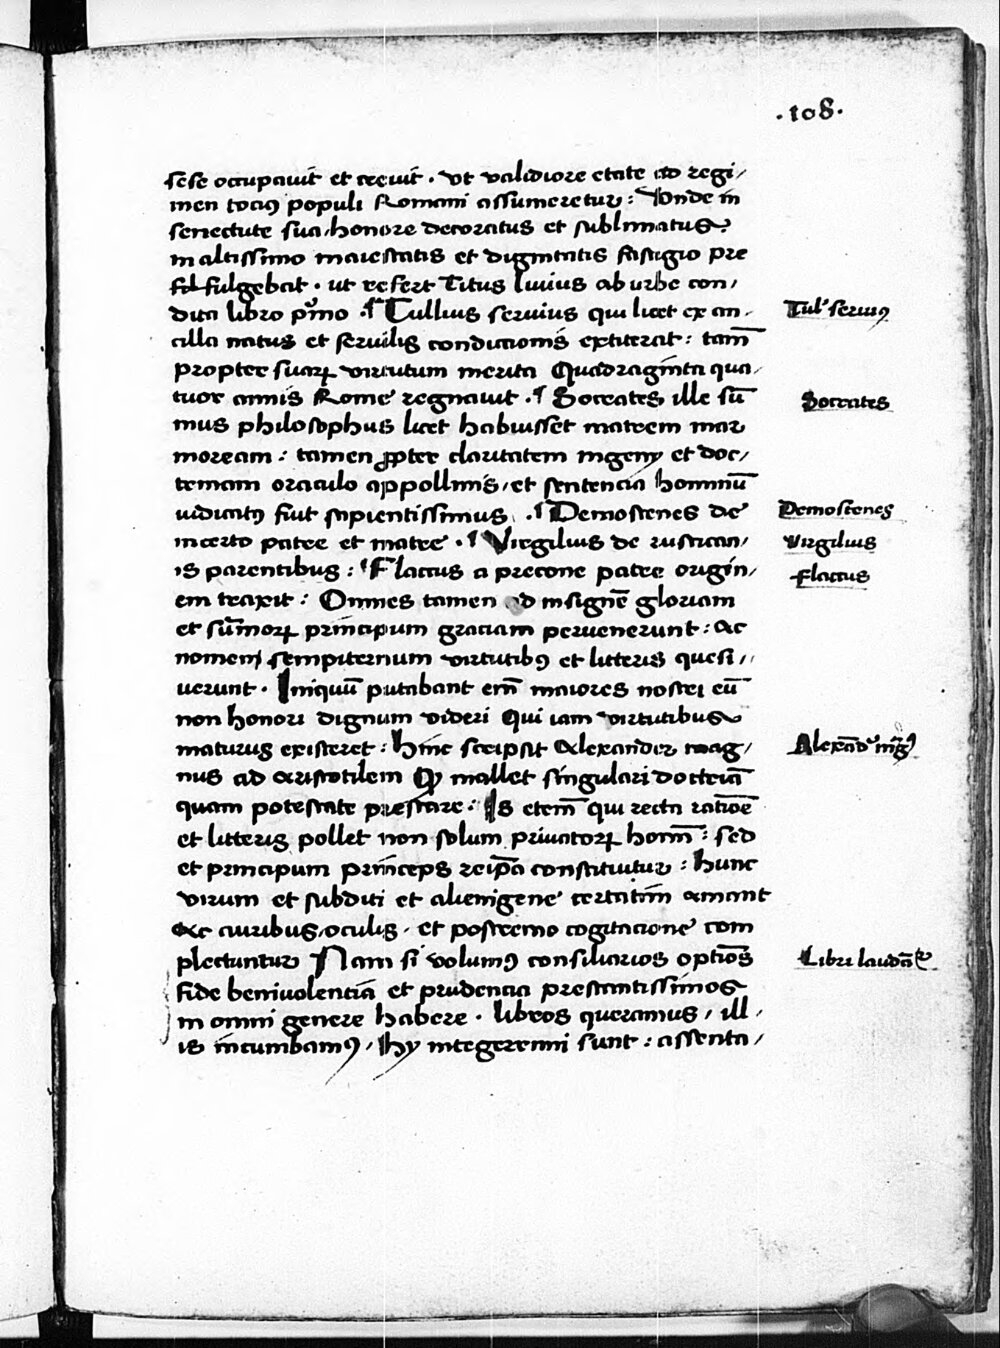 .108.
sese occupauit et creuit . vt validiore etate ad regi/
men tociꝯ populi Romani assumeretur : Vnde in
senectute sua/honore decoratus et sublimatus
in altissimo maiestatis et dignitatis fastigio pre
fulgebat . ut refert Titus liuius ab urbe con/
dita libro pͥmo . ¶ Tullius seruius qui licet ex an/
Tulˀ seruiꝯ
cilla natus et seruilis condicionis extiterat : tam̅
propter suaꝝ virtutum merita Quadraginta qua/
tuor annis Rome regnauit . ¶ Socrates ille su̅
Socrates
mus philosophus licet habuisset matrem mar
moream : tamen ꝓpter claritatem ingenij et doc/
trinam oraculo appollinis/et sentencia hominu̅
iudicatꝯ fuit sapientissimus . ¶ Demostenes de
Demostenes
incerto patre et matre . ¶ Virgilius de rustican/
Virgilius
is parentibus : ¶ Flaccus a precone patre origin/
Flaccus
em traxit : Omnes tamen ad insigne̅ gloriam
et su̅moꝝ principum graciam peruenerunt : Ac
nomen sempiternum virtutibꝯ et litteris quesi//
uerunt . Iniquu̅ putabant em̅ maiores nostri eu̅
non honori dignum videri Qui iam virtutibus
maturus existeret : Hinc scripsit Alexander mag/
Alexa̅dˀ mg̅ꝯ
nus ad aristotilem Qꝫ mallet singulari doctria̅
quam potestate prestare : Is etem̅ qui recta ratio̅e
et litteris pollet non solum priuatoꝝ hom̅ : sed
et principum princeps reip̅a constituitur : Hunc
virum et subditi et alienigene certatim amant
Ac auribus/oculis . et postremo cogitacione com
plectuntur Nam si volumꝯ consiliarios optio̅s
Libri lauda̅tˀ
fide beniuolencia̅ et prudencia prestantissimos
in omni genere habere . libros queramus / ill/
is incumbamꝯ / Hy integerrimi sunt : assenta/